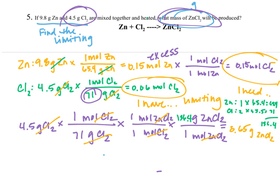 5. If 9.8 g Zn and 4.5 g Cl₂ are mixed together and heated, what mass of ZnCl₂ will be produced?
g
Find the limiting
Zn + Cl₂ ----> ZnCl₂
excess
Zn: 9.8 g Zn × 1 mol Zn / 65.4 g Zn = 0.15 mol Zn × 1 mol Cl₂ / 1 mol Zn = 0.15 mol Cl₂
Cl₂: 4.5 g Cl₂ × 1 mol Cl₂ / 71 g Cl₂ = 0.06 mol Cl₂
I have... limiting
I need...
Zn: 1 × 65.4 =
Cl: 2 ×
4.5 g Cl₂ × 1 mol Cl₂ / 71 g Cl₂ × 1 mol ZnCl₂ / 1 mol Cl₂ × 136.4 g ZnCl₂ / 1 mol ZnCl₂ = 8.65 g ZnCl₂